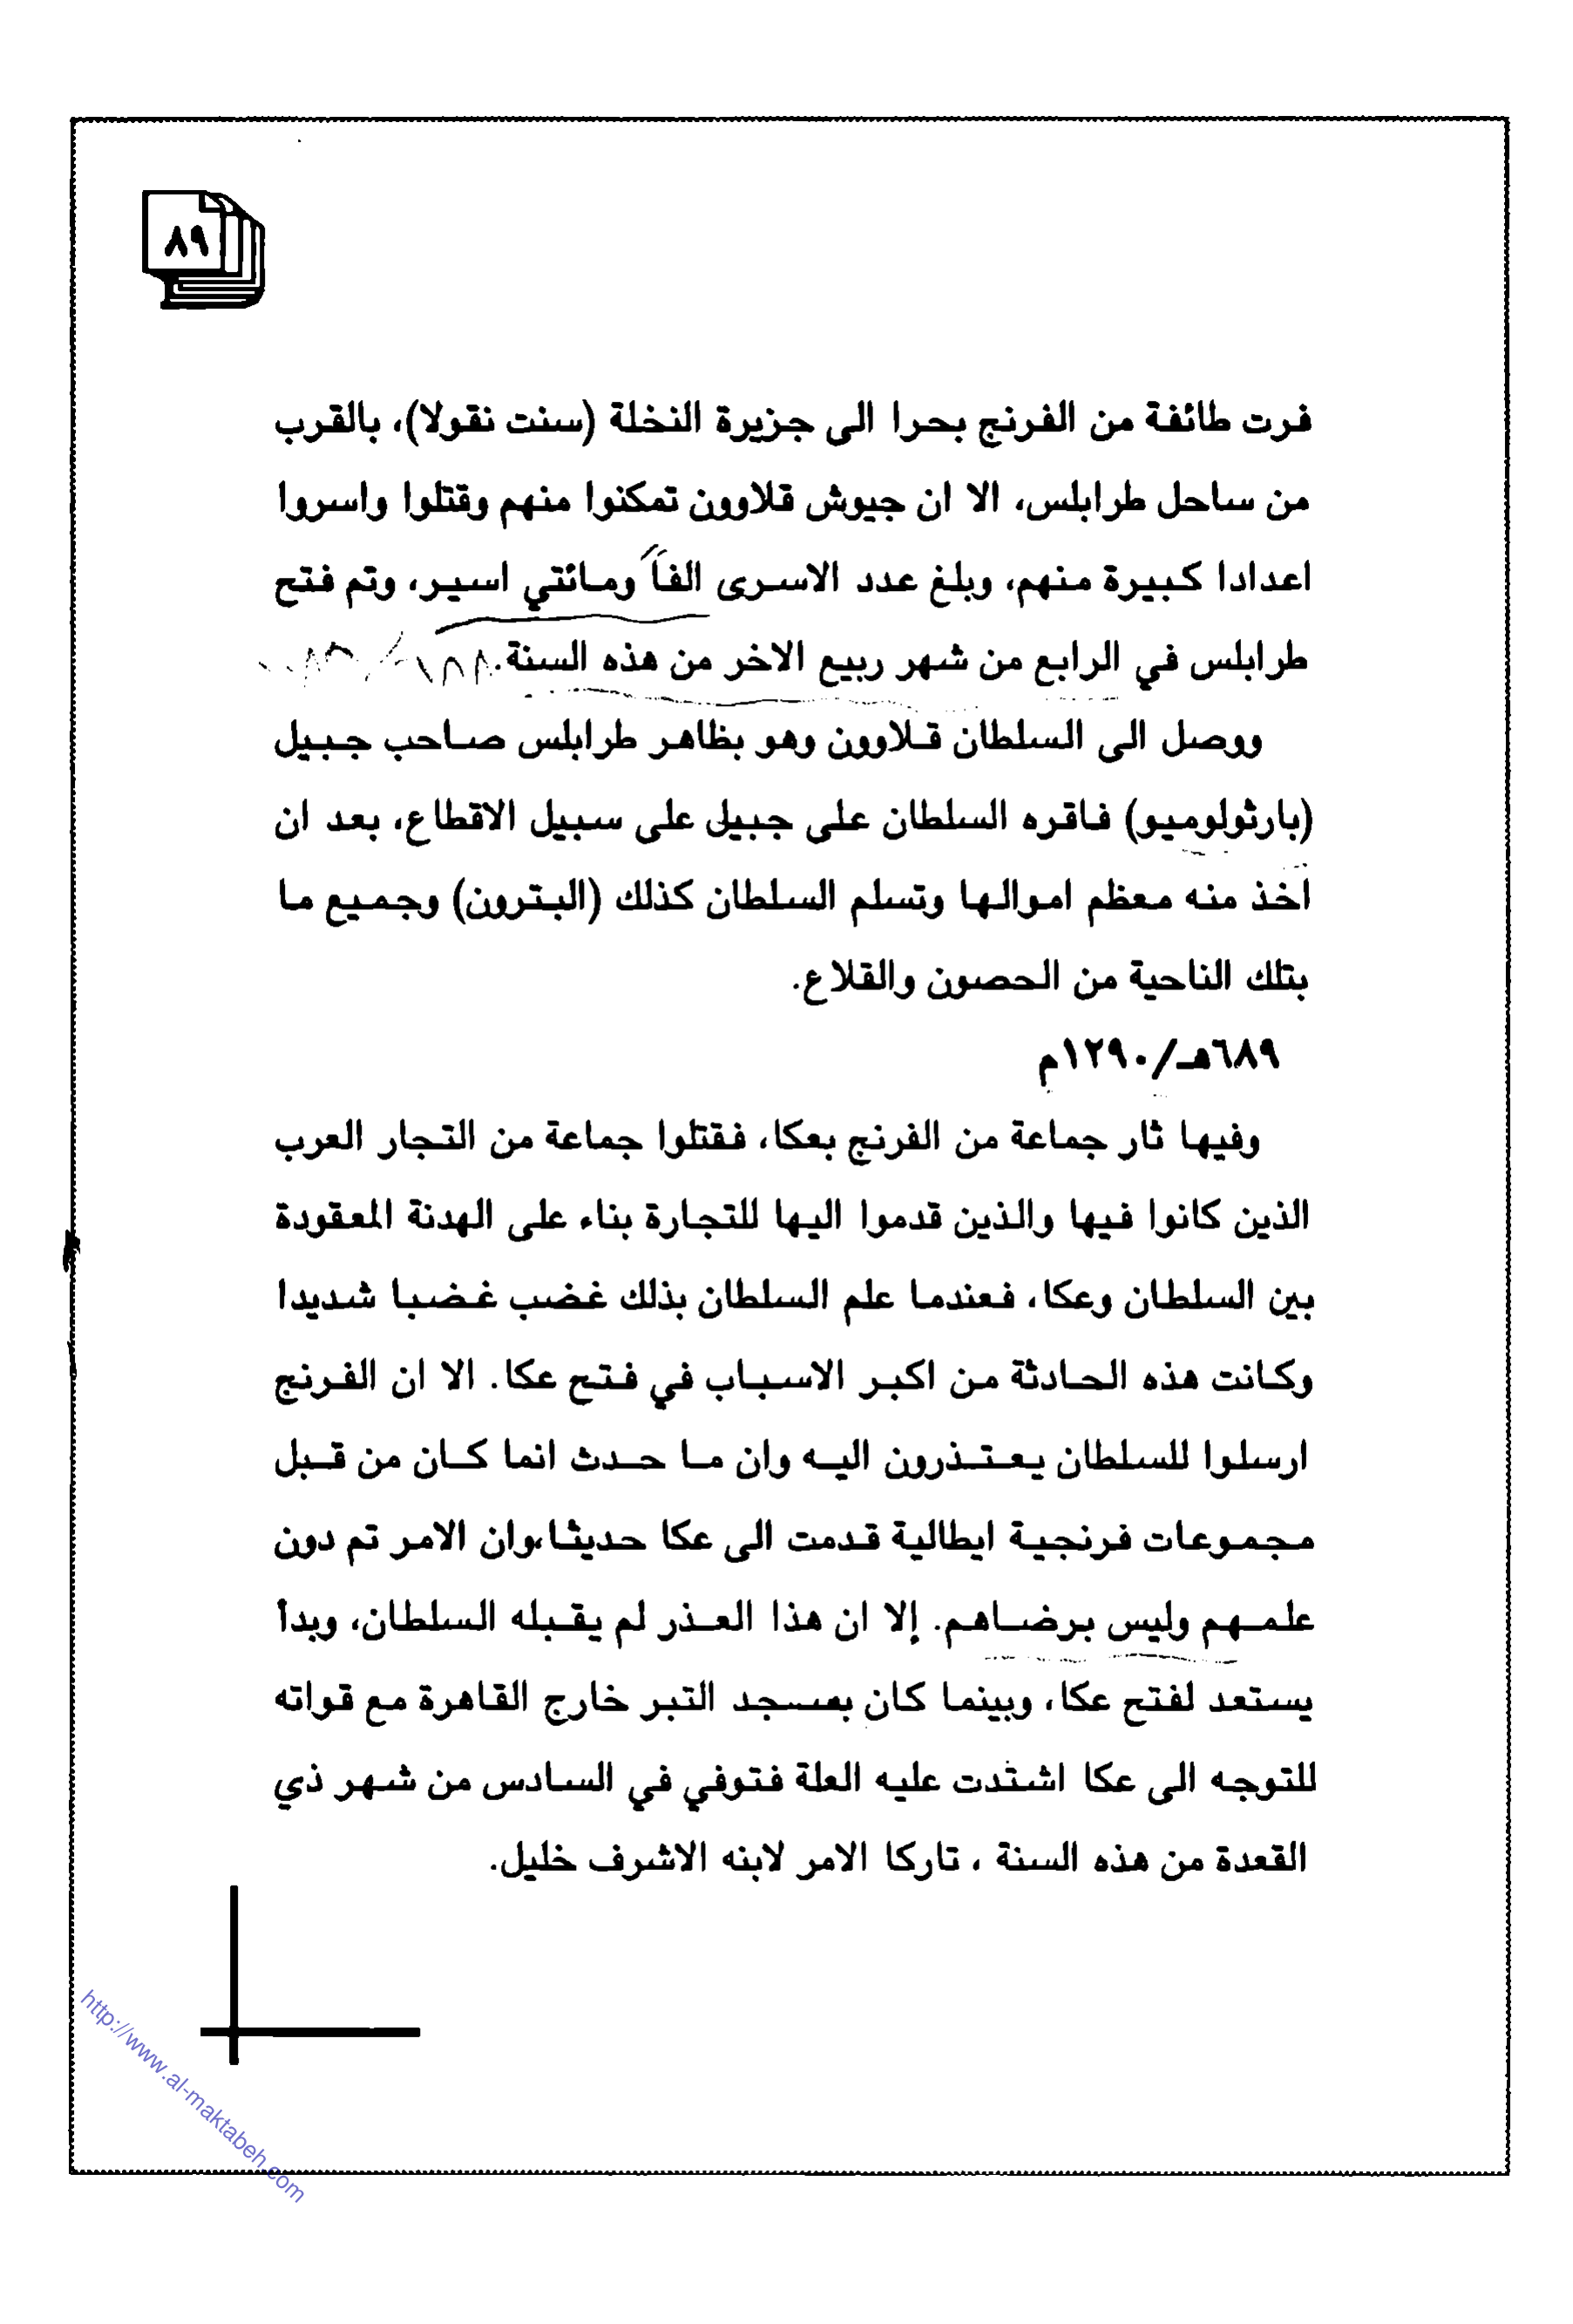 ٨٩
فرت طائفة من الفرنج بحرا الى جزيرة النخلة (سنت نقولا)، بالقرب
من ساحل طرابلس، الا ان جيوش قلاوون تمكنوا منهم وقتلوا واسروا
اعدادا كبيرة منهم، وبلغ عدد الاسرى الفاً ومائتي اسير، وتم فتح
طرابلس في الرابع من شهر ربيع الاخر من هذه السنة.
ووصل الى السلطان قلاوون وهو بظاهر طرابلس صاحب جبيل
(بارثولوميو) فاقره السلطان على جبيل على سبيل الاقطاع، بعد ان
اخذ منه معظم اموالها وتسلم السلطان كذلك (البترون) وجميع ما
بتلك الناحية من الحصون والقلاع.
٦٨٩هـ/١٢٩٠م
وفيها ثار جماعة من الفرنج بعكا، فقتلوا جماعة من التجار العرب
الذين كانوا فيها والذين قدموا اليها للتجارة بناء على الهدنة المعقودة
بين السلطان وعكا، فعندما علم السلطان بذلك غضب غضبا شديدا
وكانت هذه الحادثة من اكبر الاسباب في فتح عكا. الا ان الفرنج
ارسلوا للسلطان يعتذرون اليه وان ما حدث انما كان من قبل
مجموعات فرنجية ايطالية قدمت الى عكا حديثا،وان الامر تم دون
علمهم وليس برضاهم. إلا ان هذا العذر لم يقبله السلطان، وبدأ
يستعد لفتح عكا، وبينما كان بمسجد التبر خارج القاهرة مع قواته
للتوجه الى عكا اشتدت عليه العلة فتوفي في السادس من شهر ذي
القعدة من هذه السنة ، تاركا الامر لابنه الاشرف خليل.
http://www.al-maktabeh.com